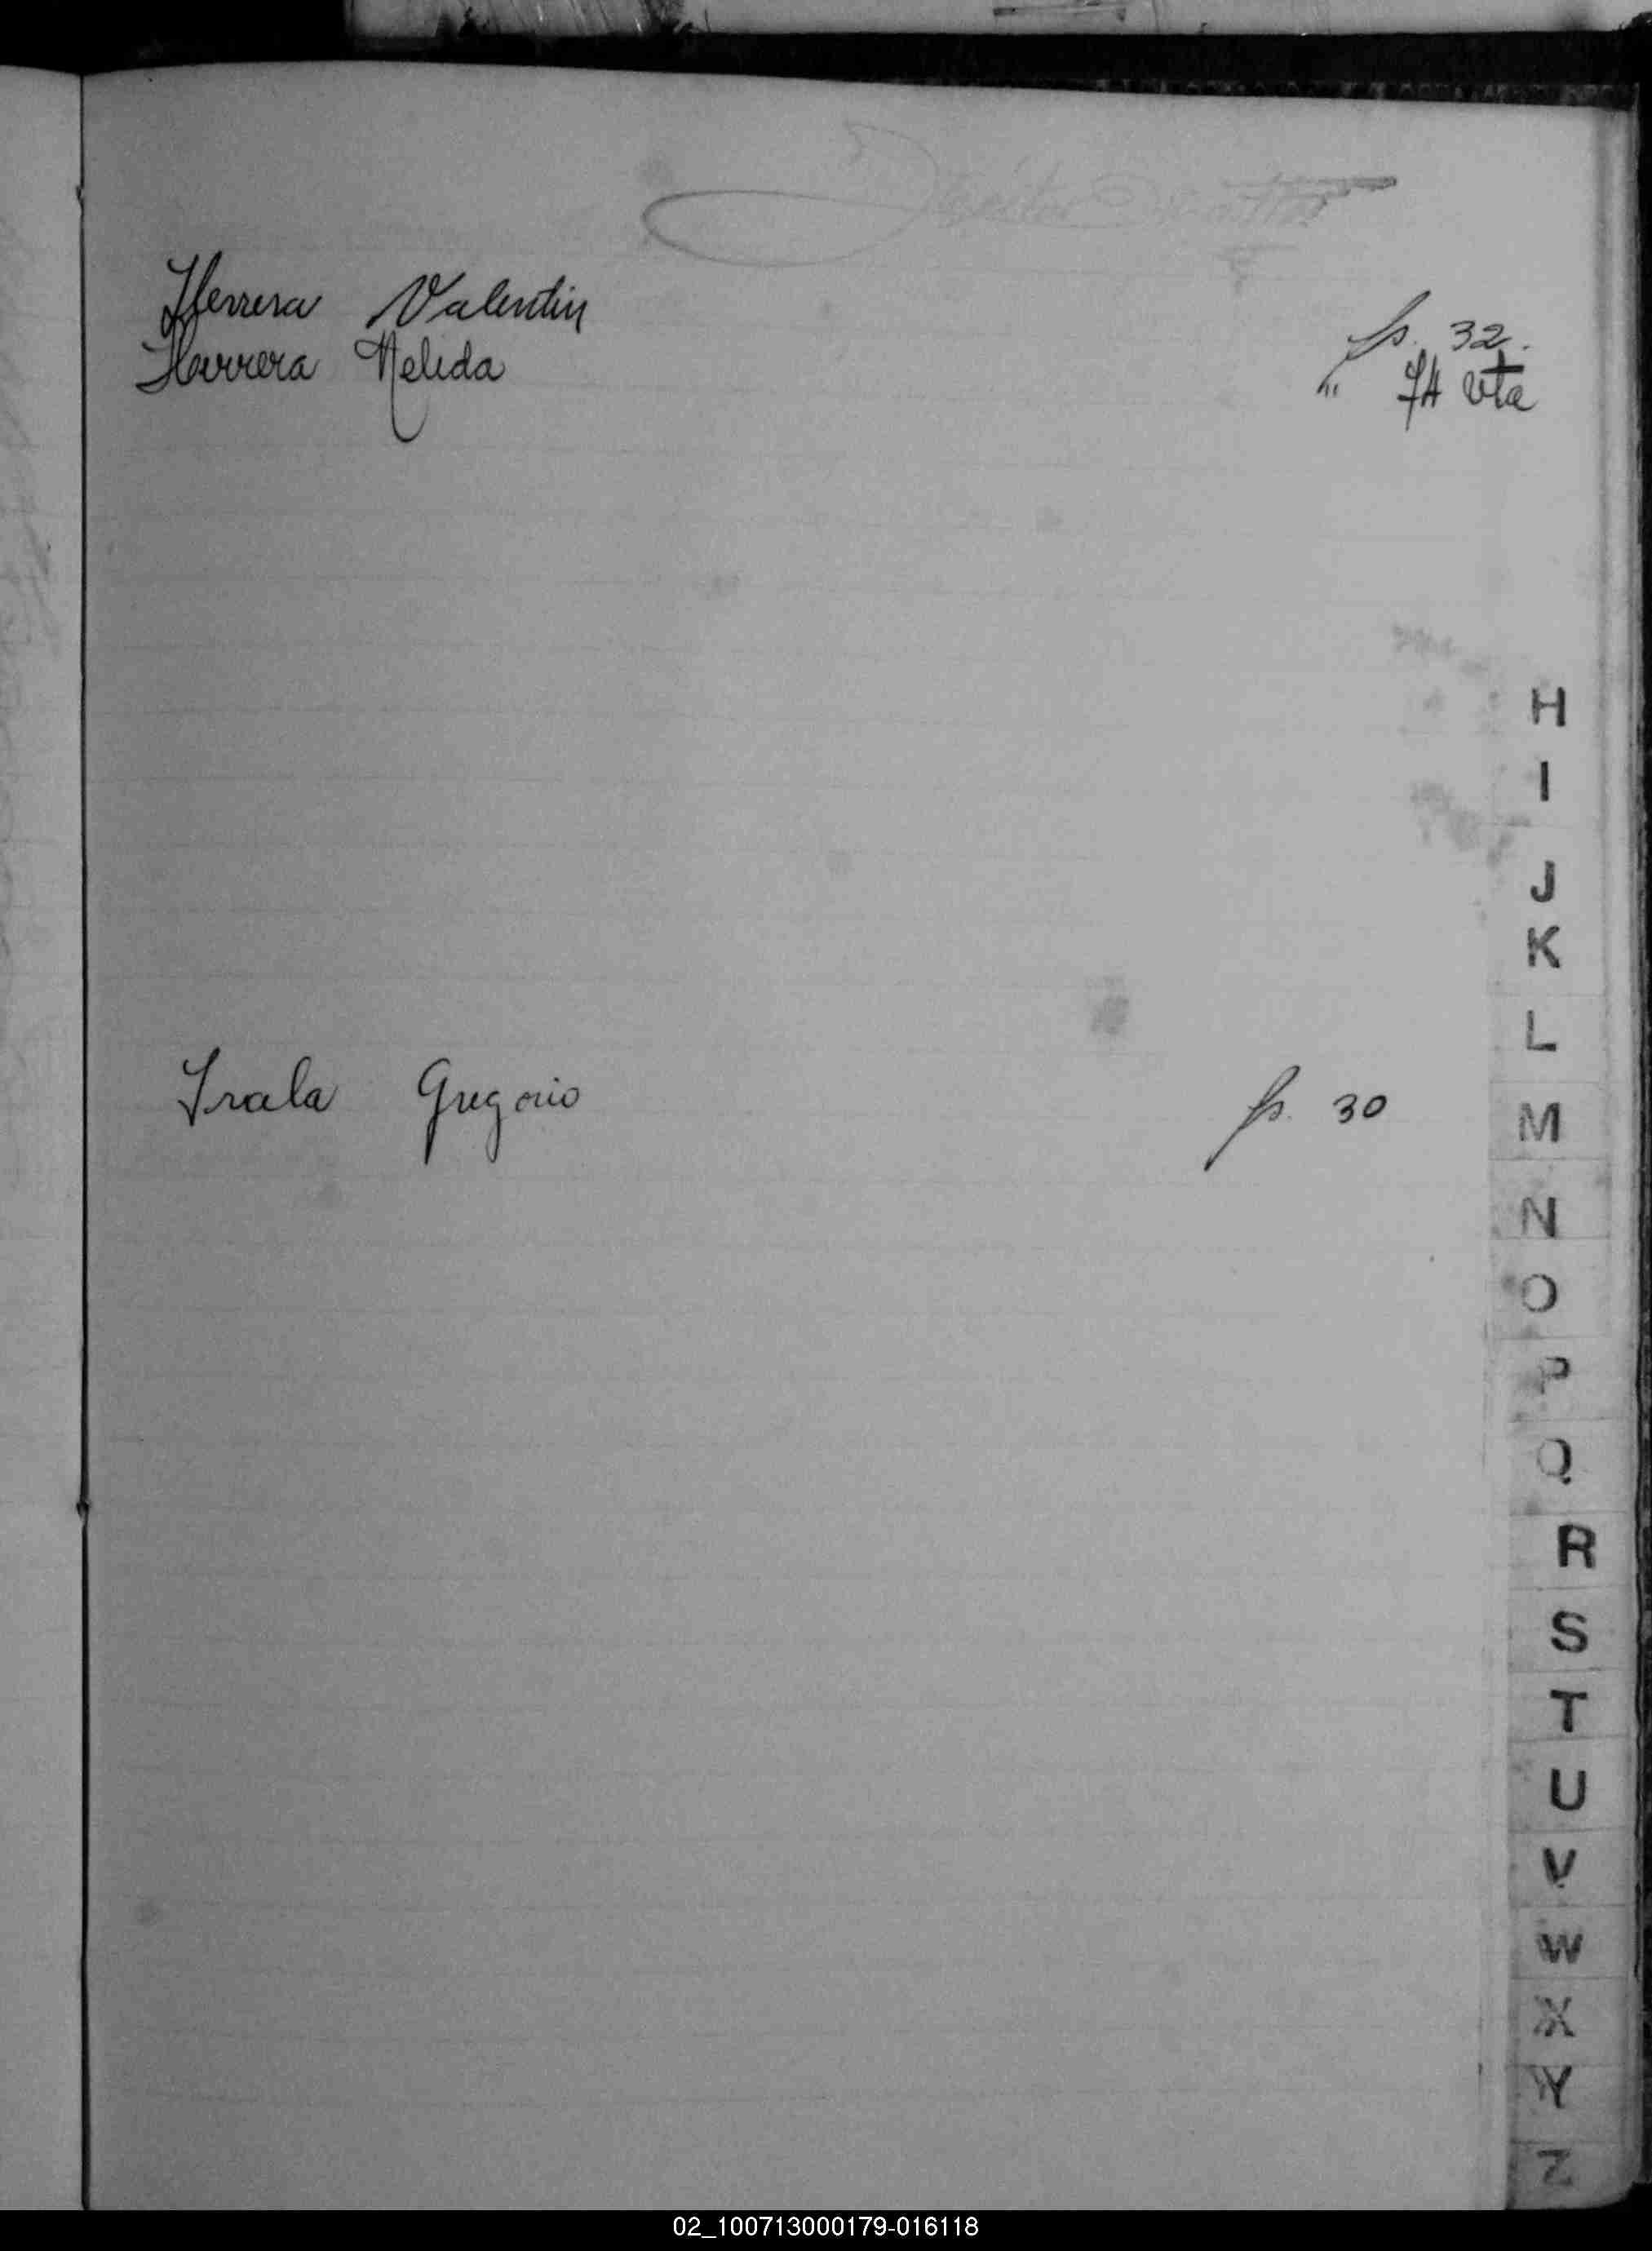 Herrera Valentin fs. 32.
Herrera Nelida " 74 vta
H
I
J
K
L
Irala Gregorio fs. 30
M
N
O
P
Q
R
S
T
U
V
W
X
Y
Z
02_100713000179-016118